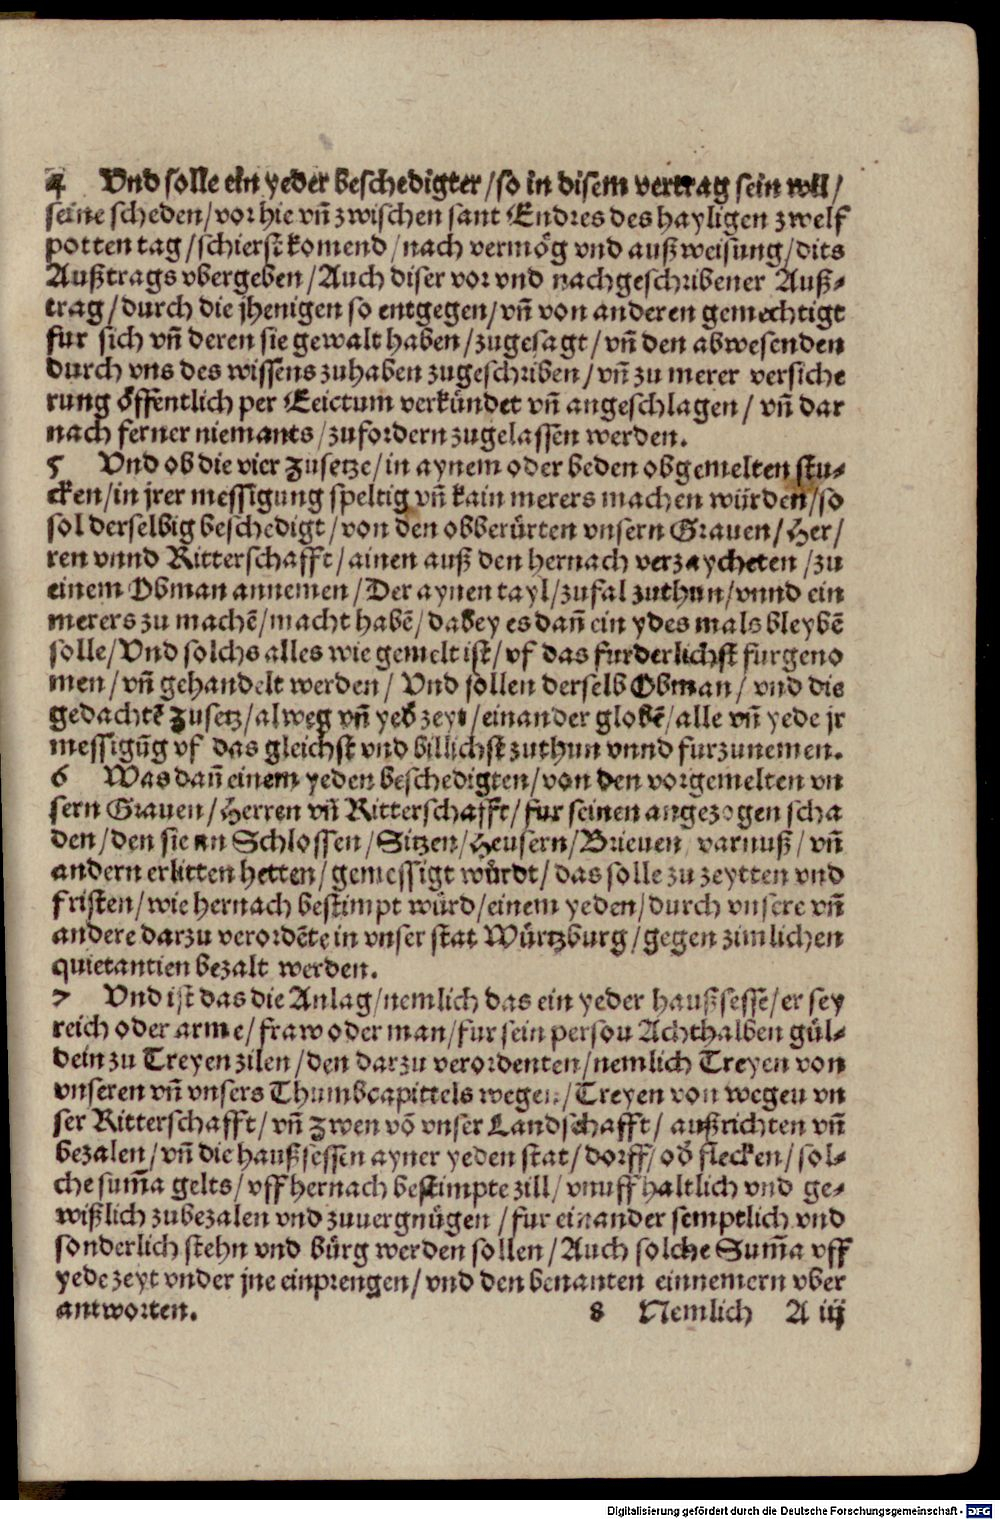 4 Vnd solle ein yeder beschedigter / so in disem vertrag sein will /
seine scheden / vor hie vñ zwischen sant Endres des hayligen zwelf
potten tag / schierst komend / nach vermög vnd außweisung / dits
Außtrags vbergeben / Auch diser vor vnd nachgeschribener Auß-
trag / durch die jhenigen so entgegen / vñ von anderen gemechtigt
fur sich vñ deren sie gewalt haben / zugesagt / vñ den abwesenden
durch vns des wissens zuhaben zugeschriben / vñ zu merer versiche
rung öffentlich per Eeictum verkündet vñ angeschlagen / vñ dar
nach ferner niemants / zufordern zugelassen werden.
5 Vnd ob die vier zusetze / in aynem oder beden obgemelten stu-
cken / in jrer messigung speltig vñ kain merers machen würden / so
sol derselbig beschedigt / von den obberürten vnsern Grauen / Her /
ren vnnd Ritterschafft / ainen auß den hernach verzaycheten / zu
einem Obman annemen / Der aynen tayl / zufal zuthun / vnnd ein
merers zu machē / macht habē / dabey es dañ ein ydes mals bleybē
solle / Vnd solchs alles wie gemelt ist / vf das furderlichst furgeno
men / vñ gehandelt werden / Vnd sollen derselb Obman / vnd die
gedachtē zusetz / alweg vñ yeb zeyt / einander globē / alle vñ yede jr
messigūg vf das gleichst vnd billichst zuthun vnnd furzunemen.
6 Was dañ einem yeden beschedigten / von den vorgemelten vn
sern Grauen / Herren vñ Ritterschafft / fur seinen angezogen scha
den / den sie an Schlossen / Sitzen / Heusern / Brieuen / varnuß / vñ
andern erlitten hetten / gemessigt würdt / das solle zu zeytten vnd
fristen / wie hernach bestimpt würd / einem yeden / durch vnsere vñ
andere darzu verordēte in vnser stat Würtzburg / gegen zimlichen
quietantien bezalt werden.
7 Vnd ist das die Anlag / nemlich das ein yeder haußsesse / er sey
reich oder arme / fraw oder man / fur sein persou Achthalben gül-
dein zu Treyen zilen / den darzu verordenten / nemlich Treyen von
vnseren vñ vnsers Thumbcapittels wegen / Treyen von wegeu vn
ser Ritterschafft / vñ zwen vō vnser Landschafft / außrichten vñ
bezalen / vñ die haußsessen ayner yeden stat / dorff / ob flecken / sol-
che sum̄a gelts / vff hernach bestimpte zill / vnuffhaltlich vnd ge-
wißlich zubezalen vnd zuuergnügen / fur einander semptlich vnd
sonderlich stehn vnd bürg werden sollen / Auch solche Sum̄a vff
yede zeyt vnder jne einprengen / vnd den benanten einnemern vber
antworten. 8 Nemlich A iij
Digitalisierung gefördert durch die Deutsche Forschungsgemeinschaft - DFG